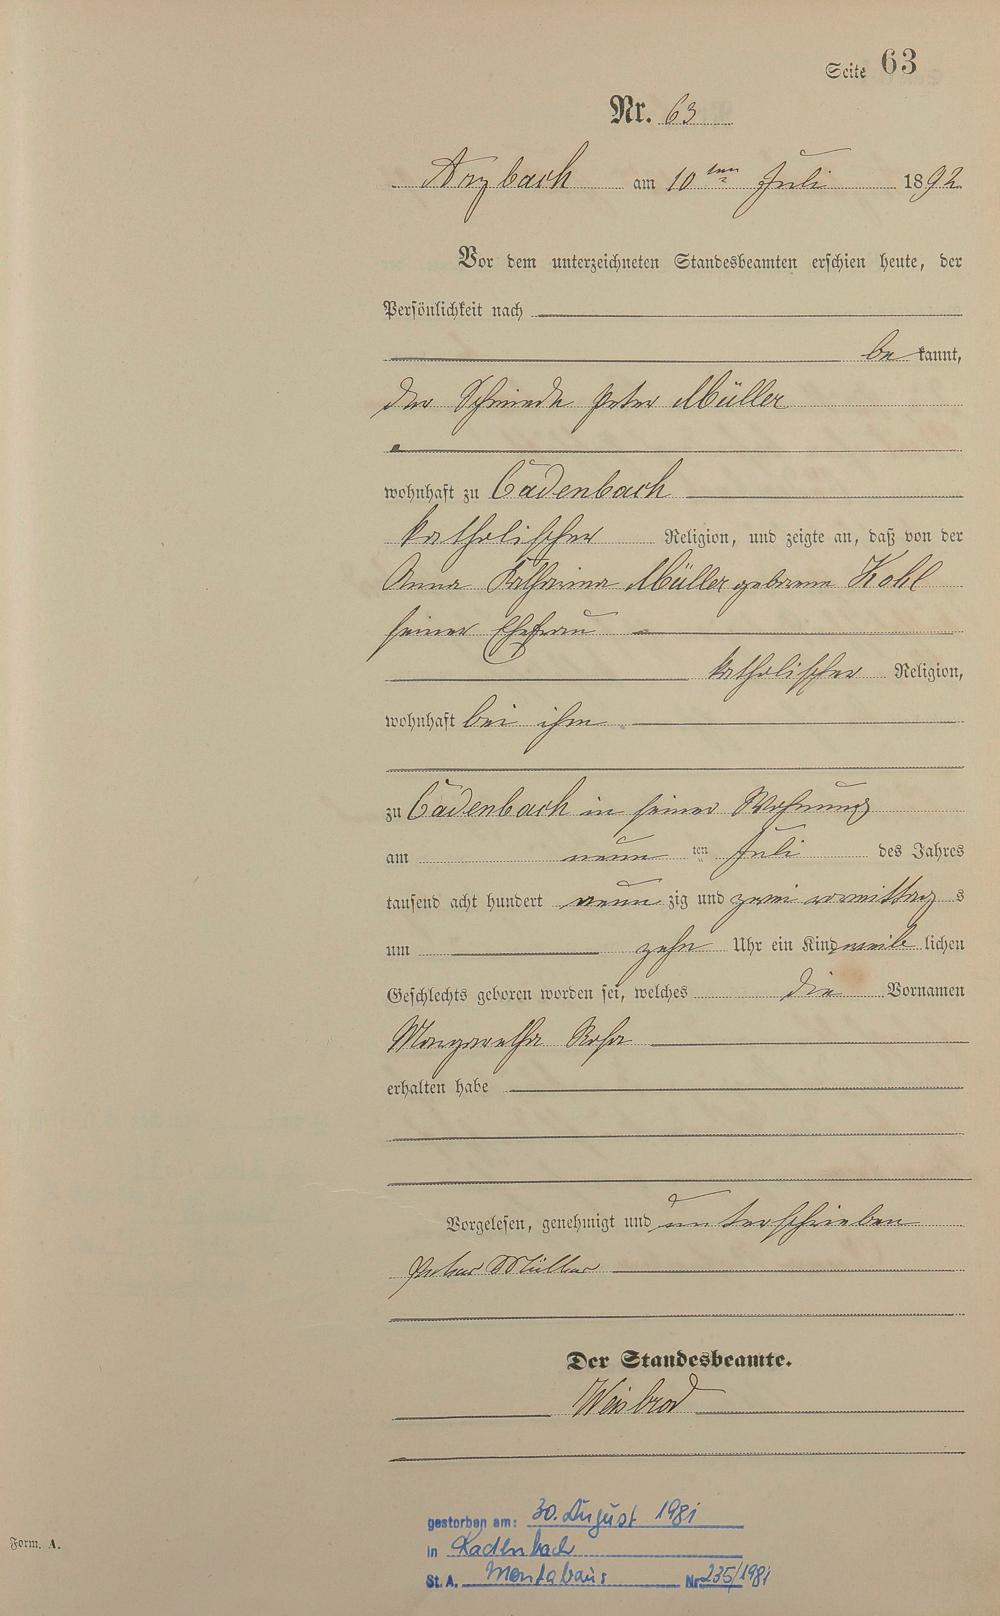 Seite 63
Nr. 63
Arzbach am 10ten Juli 1892
Vor dem unterzeichneten Standesbeamten erschien heute, der
Persönlichkeit nach
be kannt,
der Schmiede Peter Müller
wohnhaft zu Cadenbach
katholischer Religion, und zeigte an, daß von der
Anna Katharina Müller geborene Kohl
seiner Ehefrau
katholischer Religion,
wohnhaft bei ihm
zu Cadenbach in seiner Wohnung
am neun ten Juli des Jahres
tausend acht hundert neun zig und zwei vormittag s
um zehn Uhr ein Kind weib lichen
Geschlechts geboren worden sei, welches die Vornamen
Margaretha Rosa
erhalten habe
Vorgelesen, genehmigt und unterschrieben
Peter Müller
Der Standesbeamte.
Weisbrod
gestorben am: 30. August 1981
in Kadenbach
St. A. Montabaur Nr. 235/1981
Form. A.